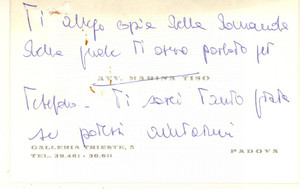 Ti allego copia della domanda
della quale Ti avevo parlato per
AVV. MARINA TISO
Telefono - Ti sarei tanto grata
se potessi aiutarmi
GALLERIA TRIESTE, 5
TEL. 39.461 - 30.611 PADOVA